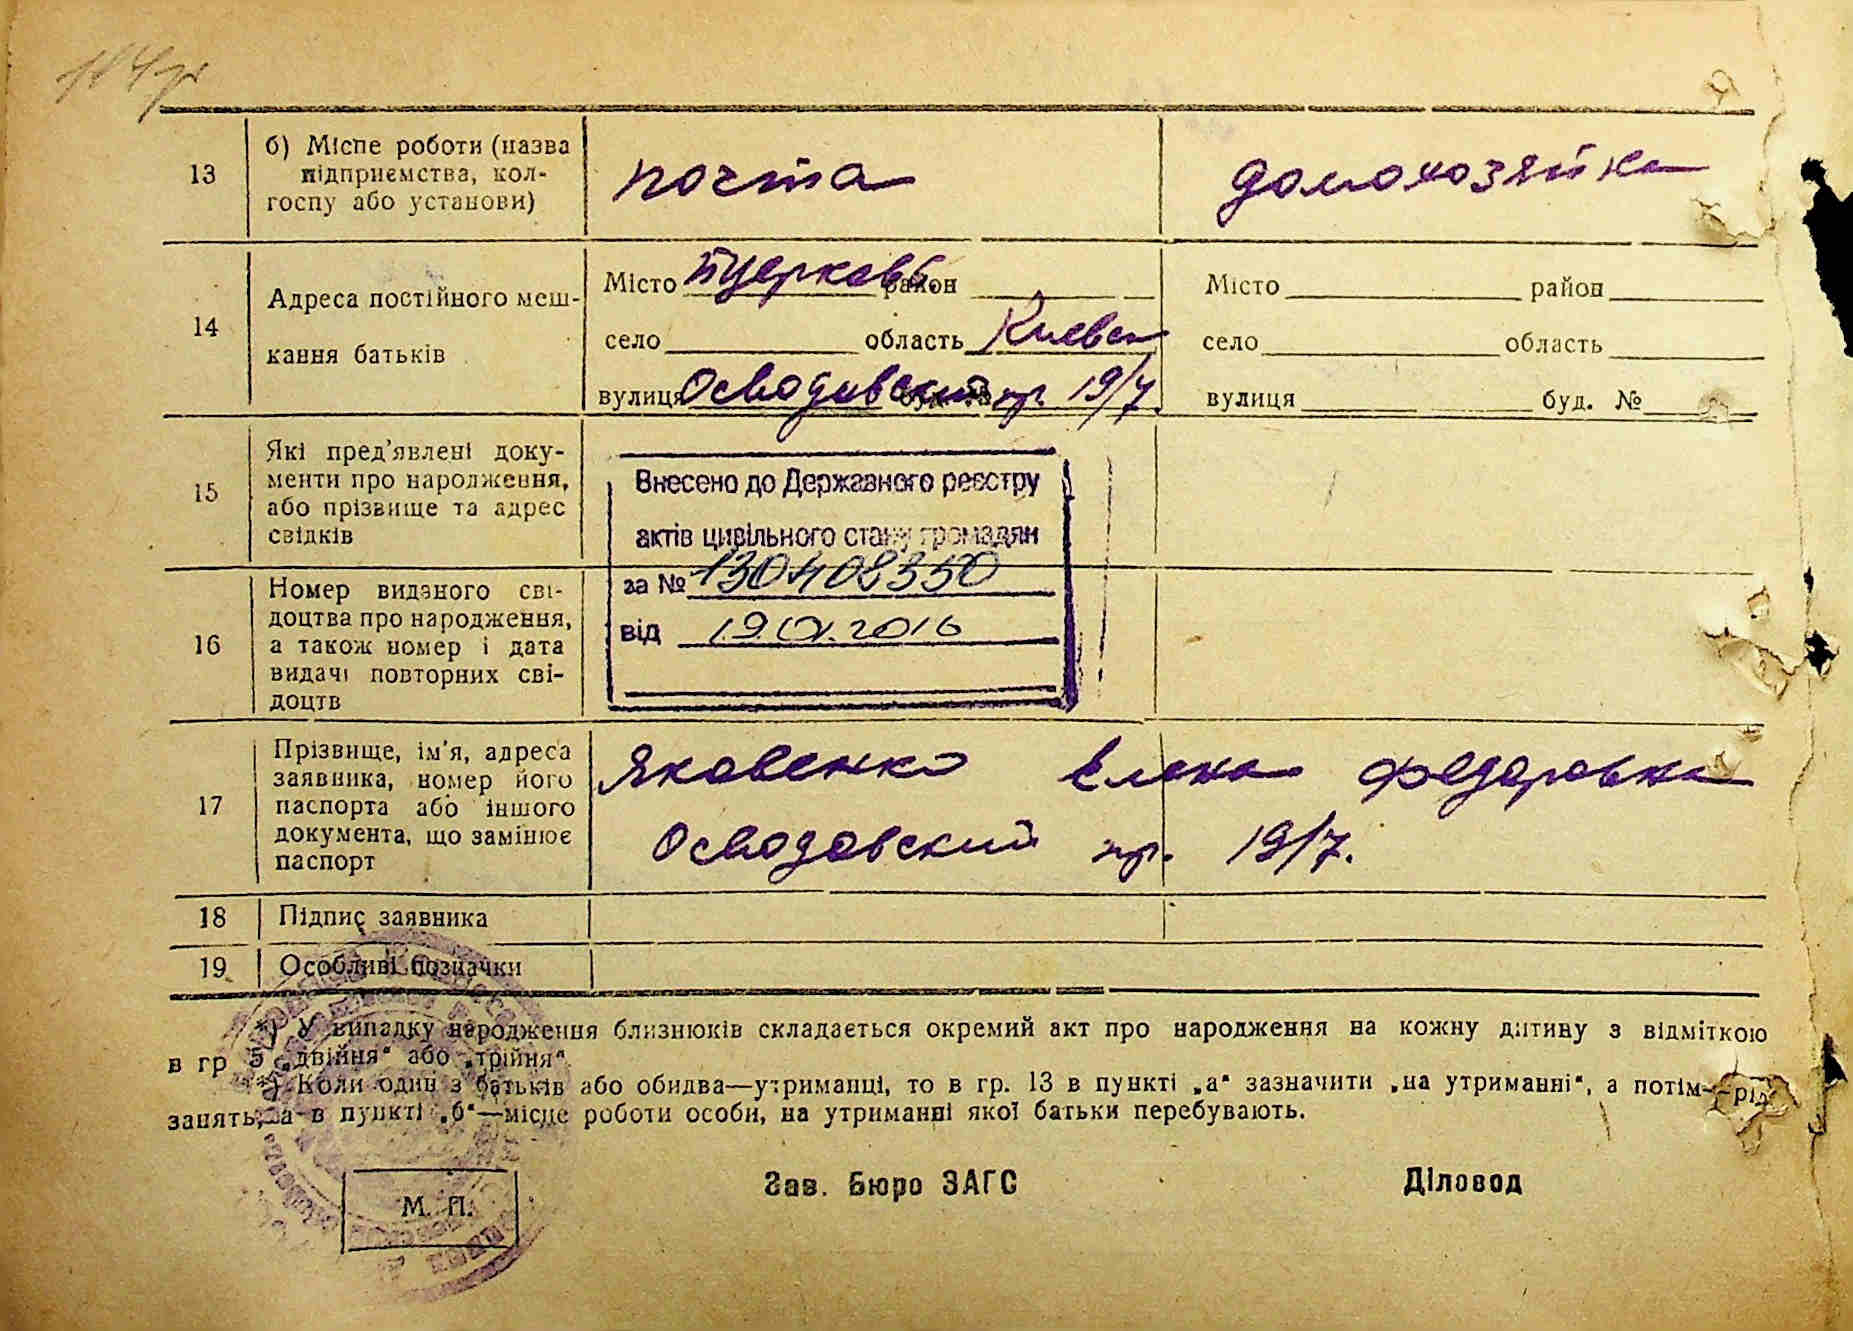 13
б) Місце роботи (назва
підприємства, кол-
госпу або установи)
почта
домохозяйка
14
Адреса постійного меш-
кання батьків
Місто Бцерковь район
село область Киевск
вулиця буд. № пр. 19/7
Місто район
село область
вулиця буд. №
15
Які пред'явлені доку-
менти про народження,
або прізвище та адрес
свідків
Внесено до Державного реєстру
актів цивільного стану громадян
за № 130408350
від 19.01.2016
16
Номер виданого сві-
доцтва про народження,
а також номер і дата
видачі повторних сві-
доцтв
17
Прізвище, ім'я, адреса
заявника, номер його
паспорта або іншого
документа, що замінює
паспорт
Яковенко Елена Федоровна
пр. 19/7.
18
Підпис заявника
19
Особливі позначки
*) У випадку народження близнюків складається окремий акт про народження на кожну дитину з відміткою
в гр 5 „двійня“ або „трійня“
**) Коли один з батьків або обидва—утриманці, то в гр. 13 в пункті „а“ зазначити „на утриманні“, а потім—рід
занять, а в пункті „б“—місце роботи особи, на утриманні якої батьки перебувають.
Зав. Бюро ЗАГС
Діловод
М. П.